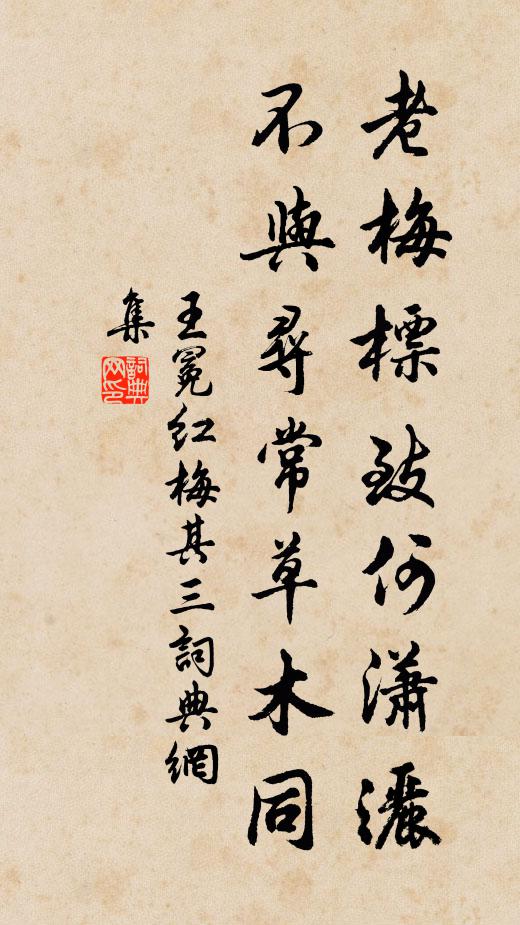 老梅標致何瀟灑
不與尋常草木同
王冕紅梅其三詞典網
集
詞典網印